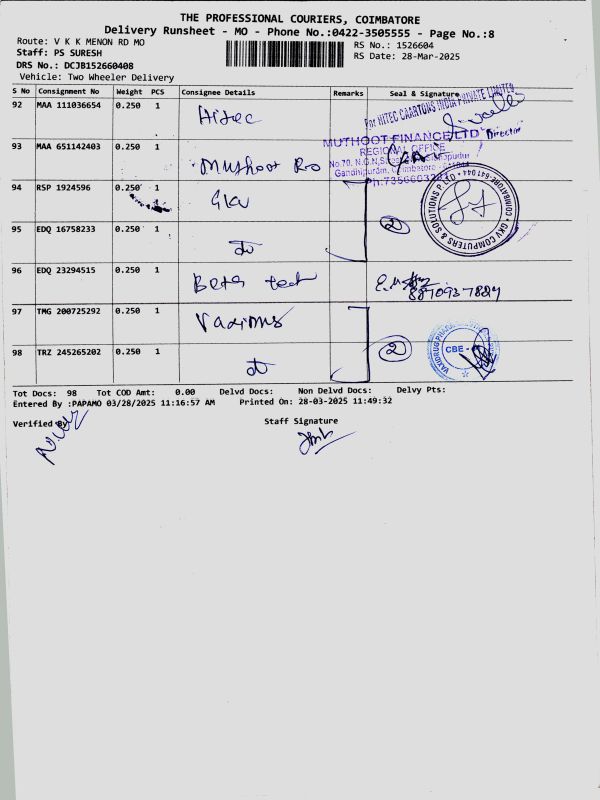 THE PROFESSIONAL COURIERS, COIMBATORE
Delivery Runsheet - MO - Phone No.:0422-3505555 - Page No.:8
Route: V K K MENON RD MO
RS No.: 1526604
Staff: PS SURESH
RS Date: 28-Mar-2025
DRS No.: DCJB152660408
Vehicle: Two Wheeler Delivery
S No Consignment No Weight PCS Consignee Details Remarks Seal & Signature
92 MAA 111036654 0.250 1 Hitec
For HITEC CAARTONS INDIA PRIVATE LIMITED
Director
93 MAA 651142403 0.250 1 Muthoot Ro
MUTHOOT FINANCE LTD
REGIONAL OFFICE
Gandhipuram, Coimbatore
94 RSP 1924596 0.250 1 GKV
GKV COMPUTERS & SOLUTIONS P. LTD
COIMBATORE-641 044
95 EDQ 16758233 0.250 1 do
2
96 EDQ 23294515 0.250 1 Beta tech
97 TMG 200725292 0.250 1 Various
98 TRZ 245265202 0.250 1 do
2
CBE
Tot Docs: 98 Tot COD Amt: 0.00 Delvd Docs: Non Delvd Docs: Delvy Pts:
Entered By :PAPAMO 03/28/2025 11:16:57 AM Printed On: 28-03-2025 11:49:32
Verified By
Staff Signature